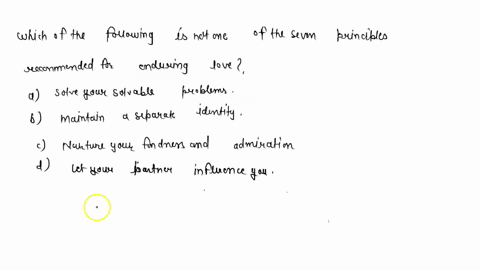 which of the following is not one of the seven principles
recommended for enduring love?,
a) solve your solvable problems.
b) maintain a separate identity.
c) Nurture your fondness and admiration
d) Let your partner influence you.